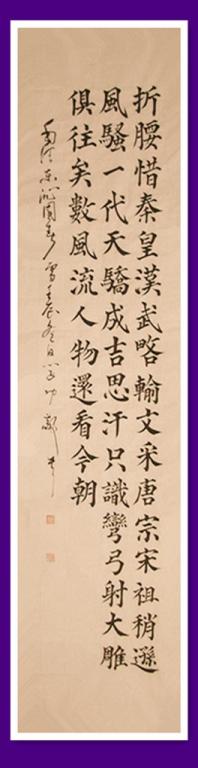 折腰惜秦皇漢武略輸文采唐宗宋祖稍遜
風騷一代天驕成吉思汗只識彎弓射大雕
俱往矣數風流人物還看今朝
毛澤東沁園春雪壬辰冬日